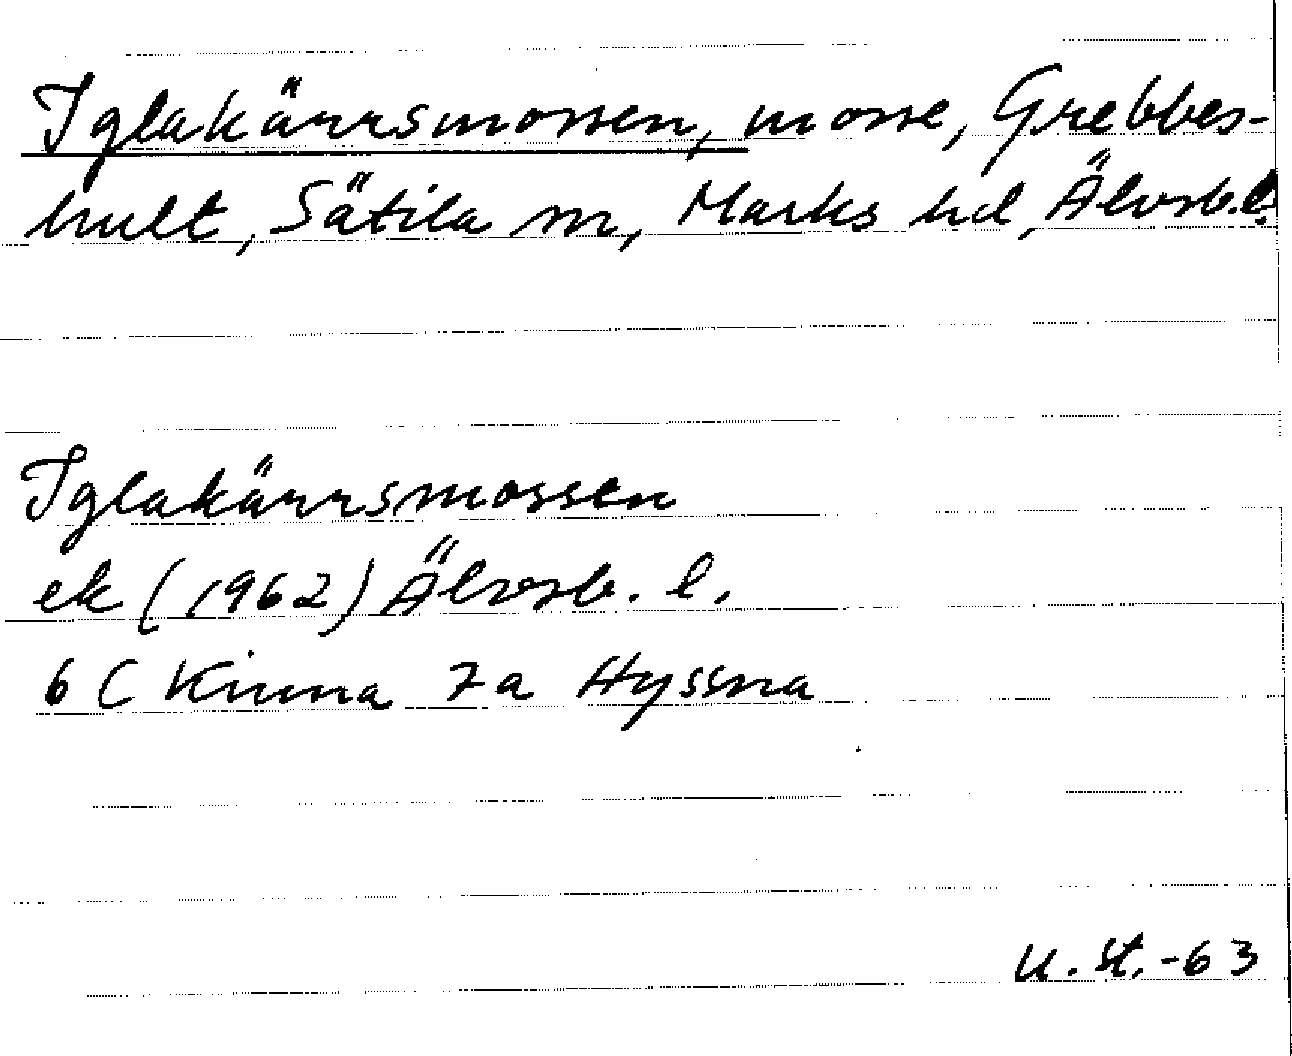 Iglakärrsmossen, mosse, Grebbes-
hult, Sätila sn, Marks hd, Älvsb.l.
Iglakärrsmossen
ek (1962) Älvsb. l.
6 C Kinna 7a Hyssna
U. St. -63